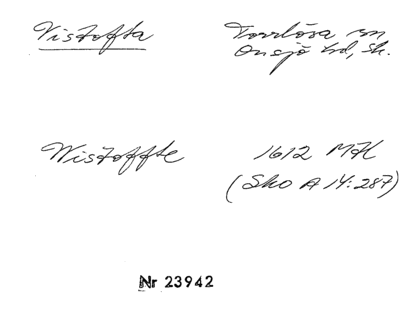 Vistofta Torrlösa sn
Onsjö hd, Sk.
Wistoffte 1612 MH
(Sko A 14:287)
Nr 23942